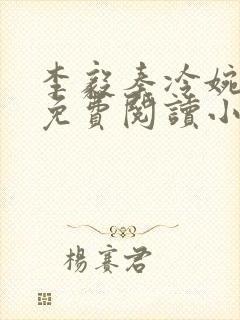 李毅秦冷婉
免費閱讀小
楊賽君